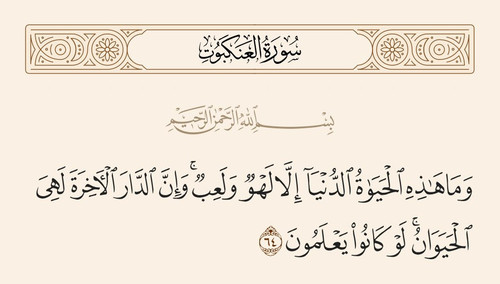 سُورَةُ الْعَنكَبُوتِ
بِسْمِ اللَّهِ الرَّحْمَٰنِ الرَّحِيمِ
وَمَا هَٰذِهِ الْحَيَوٰةُ الدُّنْيَآ إِلَّا لَهْوٌ وَلَعِبٌ ۚ وَإِنَّ الدَّارَ الْآخِرَةَ لَهِىَ
الْحَيَوَانُ ۚ لَوْ كَانُوا۟ يَعْلَمُونَ ٦٤